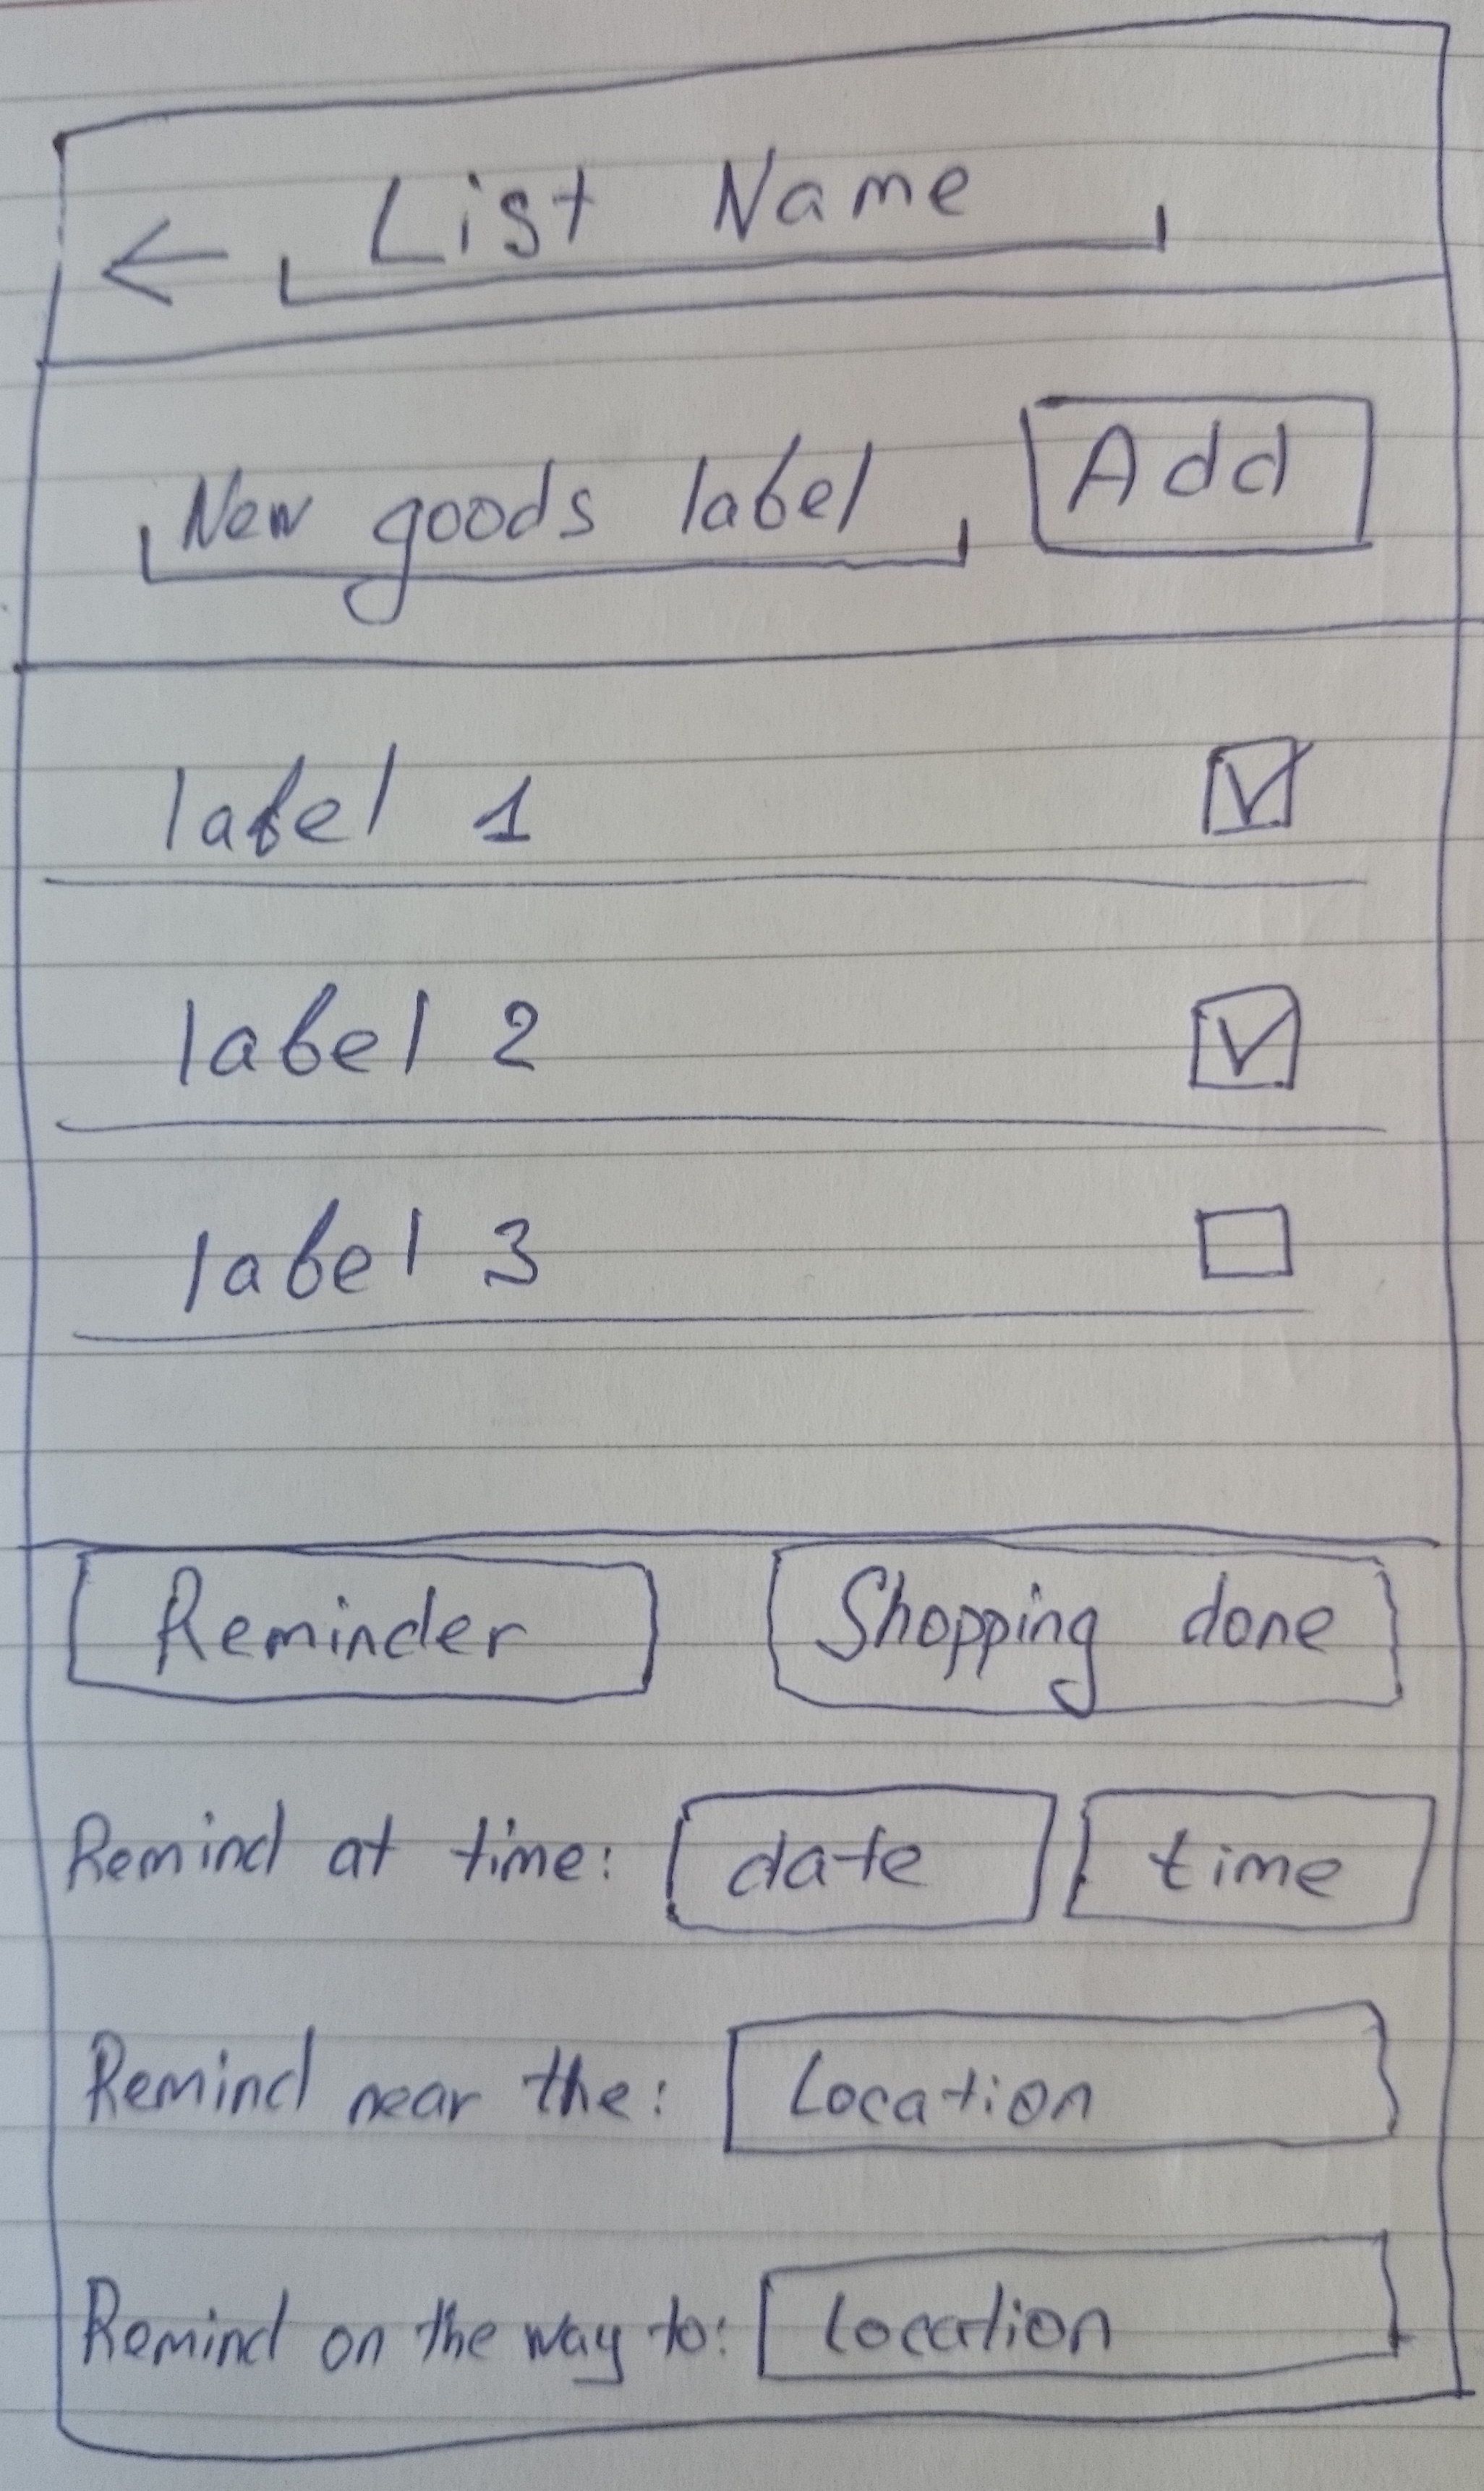 List Name
New goods label Add
label 1
label 2
label 3
Reminder Shopping done
Remind at time: date time
Remind near the: Location
Remind on the way to: Location